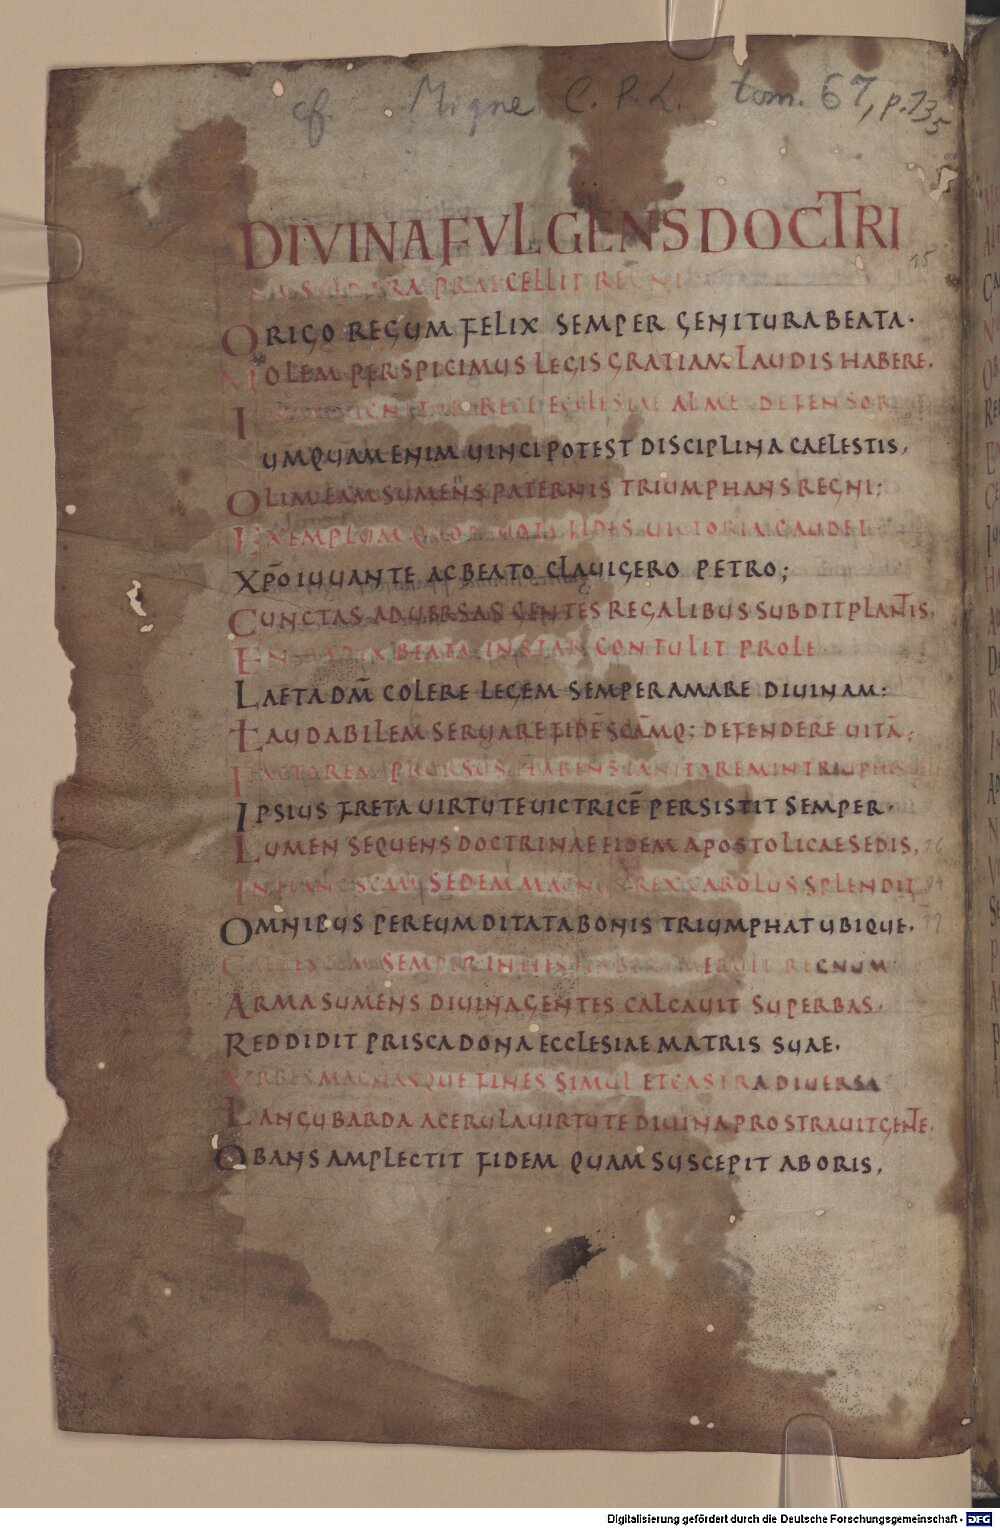 cf. Migne C. P. L. tom. 67, p. 135
DIVINA FVLGENS DOCTRI
PRAECELLIT REGNI
15
ORIGO REGUM FELIX SEMPER GENITURA BEATA.
MOLEM PERSPICIMUS LEGIS GRATIAM LAUDIS HABERE.
I REGI ECCLESIAE ALME DEFENSORI
NUMQUAM ENIM UINCI POTEST DISCIPLINA CAELESTIS,
OLIM EAM SUMENS PATERNIS TRIUMPHANS REGNI;
EXEMPLUM QUOD UOTI FIDES UICTORIA GAUDET
XP̄O IUUANTE AC BEATO CLAUIGERO PETRO;
CUNCTAS ADUERSAS GENTES REGALIBUS SUBDIT PLANTIS.
EN RADIX BEATA INSTAR CONTULIT PROLE
LAETA DM̄ COLERE LEGEM SEMPER AMARE DIUINAM:
LAUDABILEM SERUARE FIDĒ SCĀMQ; DEFENDERE UITĀ;
FACTOREM PRORSUS HABENS IANITOREM IN TRIUMPHIS
IPSIUS FRETA UIRTUTE UICTRICĒ PERSISTIT SEMPER.
LUMEN SEQUENS DOCTRINAE FIDEM APOSTOLICAE SEDIS, 76
IN HANC SCAM SEDEM MAGNUS REX CAROLUS SPLENDIT 74
OMNIBUS PER EUM DITATA BONIS TRIUMPHAT UBIQUE. 77
CAELESTEM SEMPER IN HABERE MERUIT REGNUM
ARMA SUMENS DIUINA GENTES CALCAUIT SUPERBAS.
REDDIDIT PRISCA DONA ECCLESIAE MATRIS SUAE.
VRBES MAGNAS QUE FINES SIMUL ET CASTRA DIUERSA
LANGUBARDA ACERULA UIRTUTE DIUINA PROSTRAUIT GENTE.
OBANS AMPLECTIT FIDEM QUAM SUSCEPIT AB ORIS,
Digitalisierung gefördert durch die Deutsche Forschungsgemeinschaft - DFG